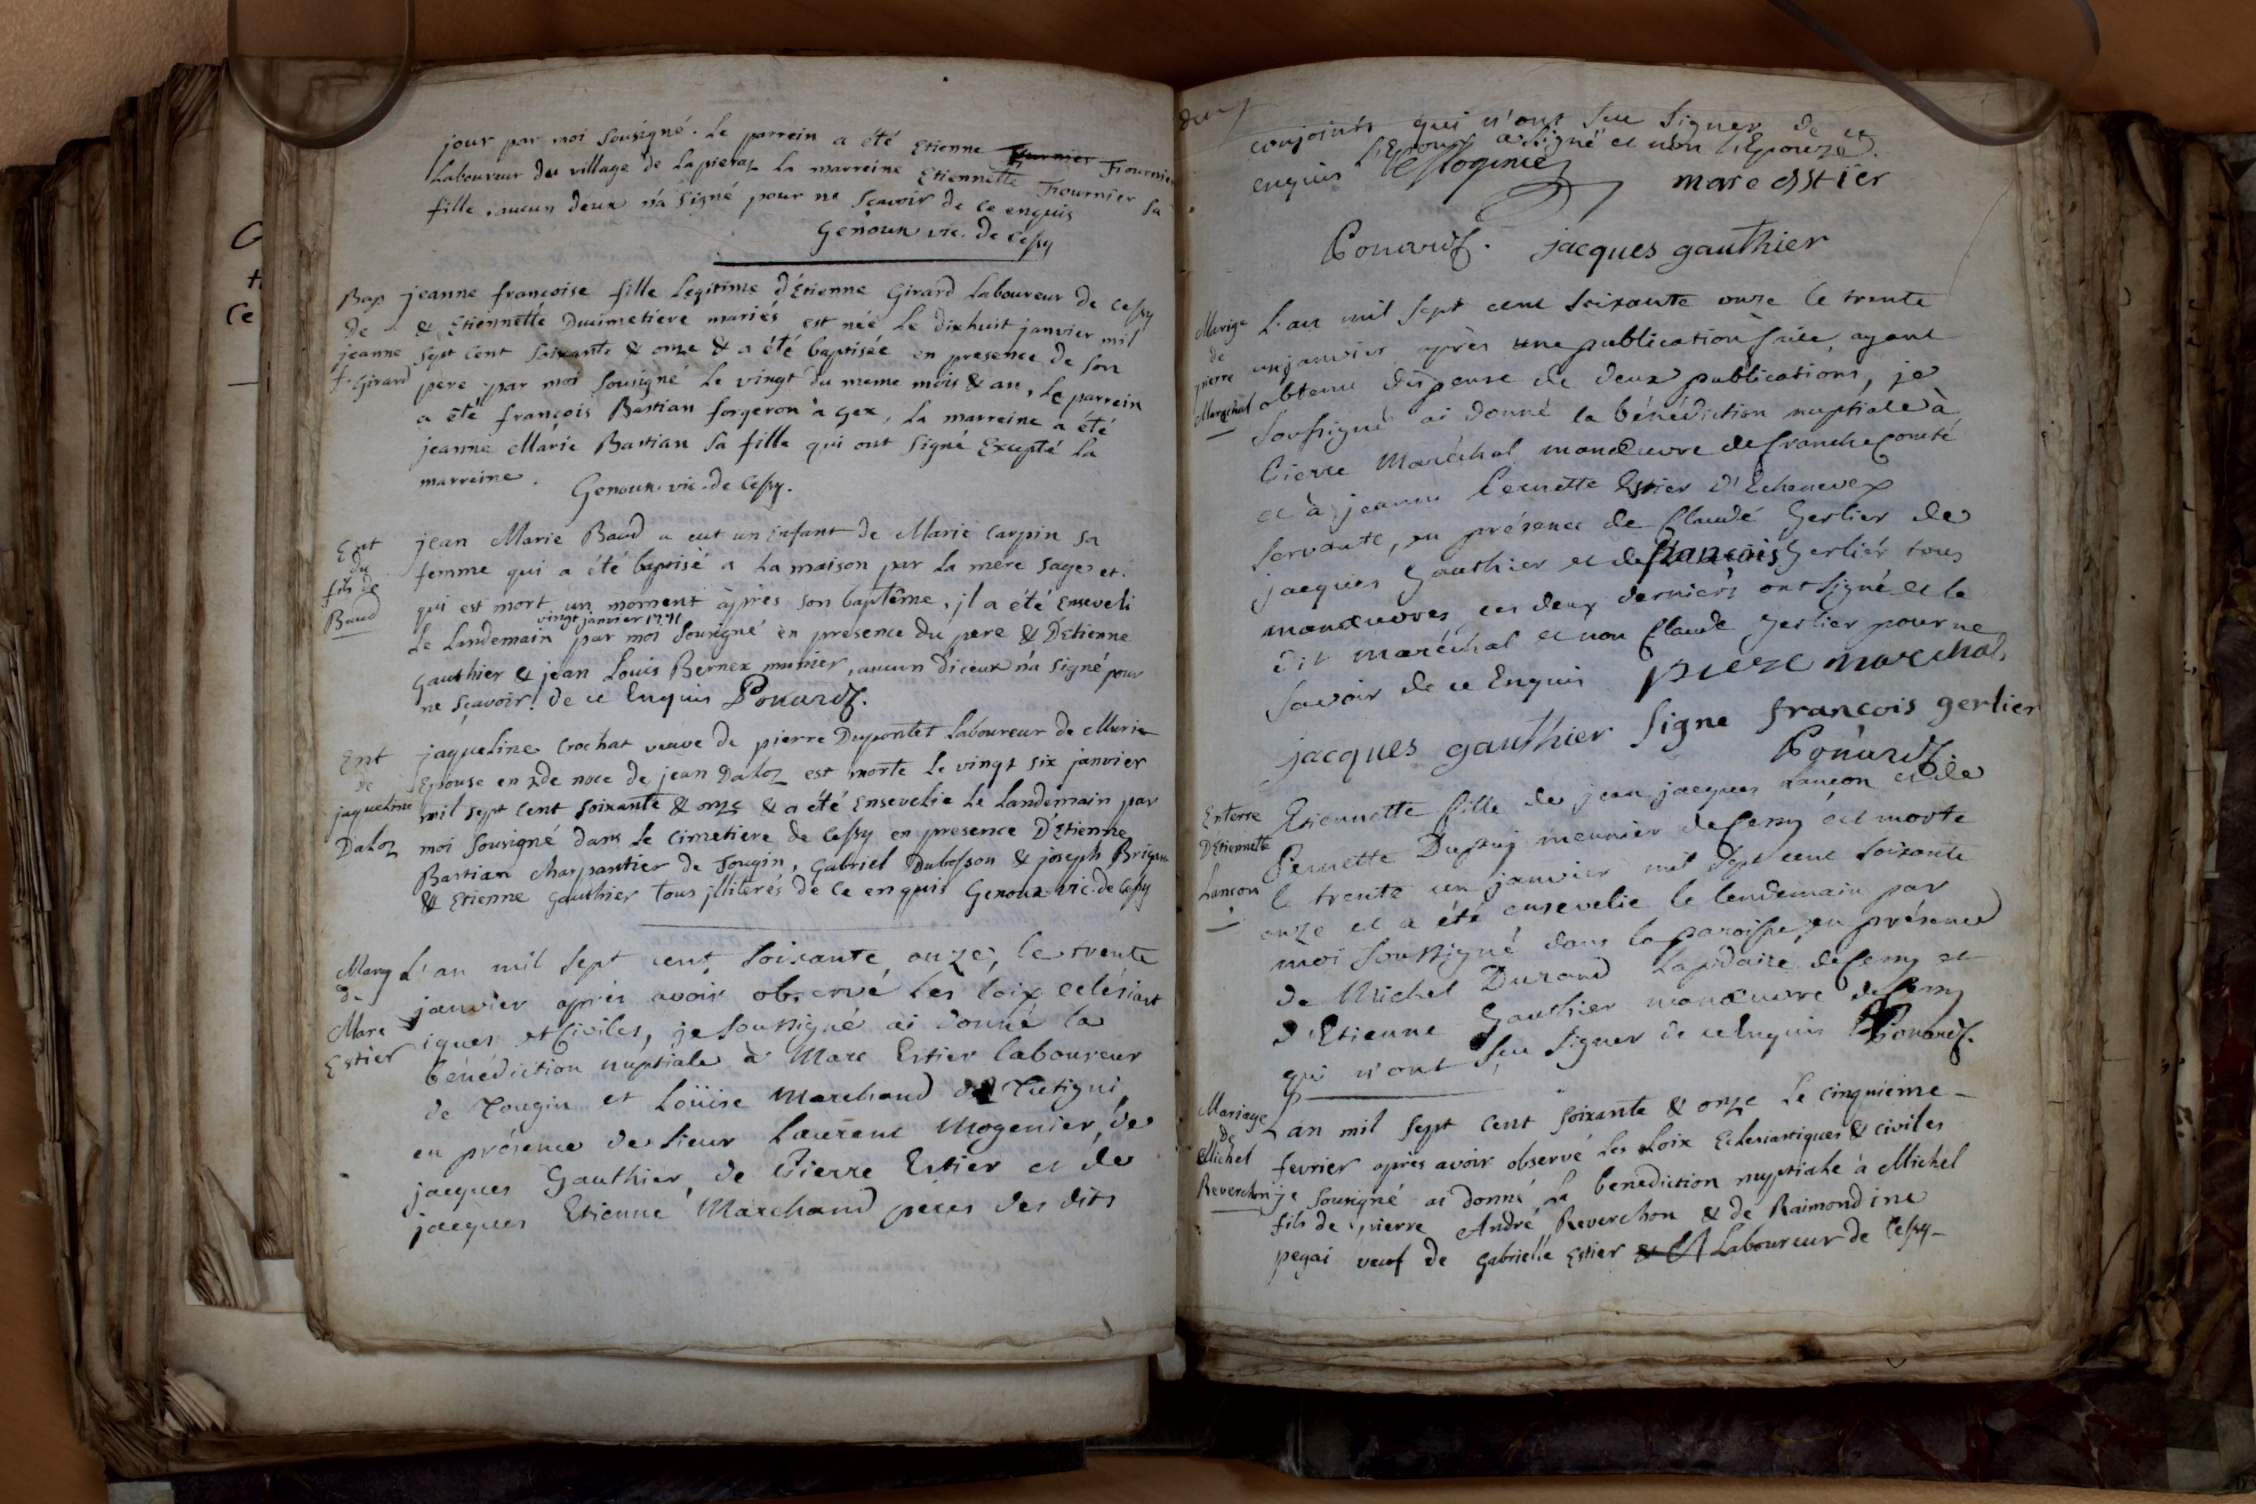 jour par moi sousigné. Le parrein a été Etienne Fournier
Laboureur du village de Lapieraz La marreine Etiennette Fournier sa
fille, aucun deux n'a signé pour ne sçavoir de ce enquis
Genoux vic. de Cessy
Bap
de
jeanne
f. Girard
jeanne françoise fille Legitime d'Etienne Girard Laboureur de Cessy
& Etiennette Ducimetiere mariés est née Le dixhuit janvier mil
sept cent soixante & onze & a été baptisée en presence de son
pere par moi sousigné Le vingt du meme mois & an, Le parrein
a été françois Bastian forgeron à Gex, La marreine a été
jeanne Marie Bastian sa fille qui ont signé Excepté La
marreine. Genoux vic. de Cessy.
Ent
du
fils de
Baud
jean Marie Baud a eut un Enfant de Marie Carpin sa
femme qui a été baptisé a La maison par La mere sage et
qui est mort un moment àprès son baptême, il a été Enseveli
vingt janvier 1771
Le Landemain par moi sousigné en presence du pere & D'Etienne
Gauthier & jean Louis Bernex munier, aucun d'iceux n'a signé pour
ne sçavoir de ce Enquis Ponard.
Ent
de
jaqueline
Daloz
jaqueline Crochat veuve de pierre Dupontet Laboureur de
Epouse en 2de noce de jean Daloz est morte Le vingt six janvier
mil sept cent soixante & onze & a été Ensevelie Le Landemain par
moi sousigné dans Le Cimetiere de Cessy en presence D'Etienne
Bastian charpantier de Tougin, Gabriel Dubosson & joseph
& Etienne Gauthier Tous illiterés de ce enquis Genoux vic. de Cessy
Mary
de
Marc
Estier
L'an mil sept cent soixante onze, le trente
janvier après avoir observé les loix eclésiast
iques et Civiles, je soussigné ai donné la
bénédiction nuptiale à Marc Estier laboureur
de Tougin et Loüise Marchand de
en présence de sieur Laurent Mogenier, de
jacques Gauthier, de Pierre Estier et de
jacques Etienne Marchand pères des dits
conjoints qui n'ont sçu signer de ce
l'Epoux a signé et non l'Epouze
enquis
marc esstier
Ponard. jacques gauthier
Marige
de
pierre
Marechal
L'an mil sept cent soixante onze le trente
un janvier après une publication faite, ayant
obtenu dispense de deux publications, je
soussigné ai donné la bénédiction nuptiale à
Pierre Maréchal manœuvre de franche Comté
et à jeanne Pernette Estier d'Echenevex
servante, en présence de Claude Gerlier de
jacques Gauthier et de françois Gerlier tous
manœuvres, ces deux derniers ont signé et le
dit maréchal et non Claude Gerlier pour ne
savoir de ce Enquis marechal
jacques gauthier signe francois gerlier
Ponard
Enterre
D'Etiennette
Lançon
Etiennette fille de jean jacques Lançon et de
Pernette Dupuy meunier de Cessy est morte
le trente un janvier mil sept cent soixante
onze et a été ensevelie le lendemain par
moi soussigné dans la paroisse, en présence
de Michel Durand Lapidaire de Cessy et
d'Etienne Gauthier manœuvre de Cessy
qui n'ont sçu signer de ce Enquis Ponard.
Mariage
de
Michel
Reverchon
L'an mil sept cent soixante & onze Le cinquieme
fevrier après avoir observé Les Loix Eclesiastiques & civiles
je sousigné ai donné La benediction nuptiale à Michel
fils de pierre André Reverchon & de Raimondine
pegai veuf de Gabrielle Estier Laboureur de Cessy